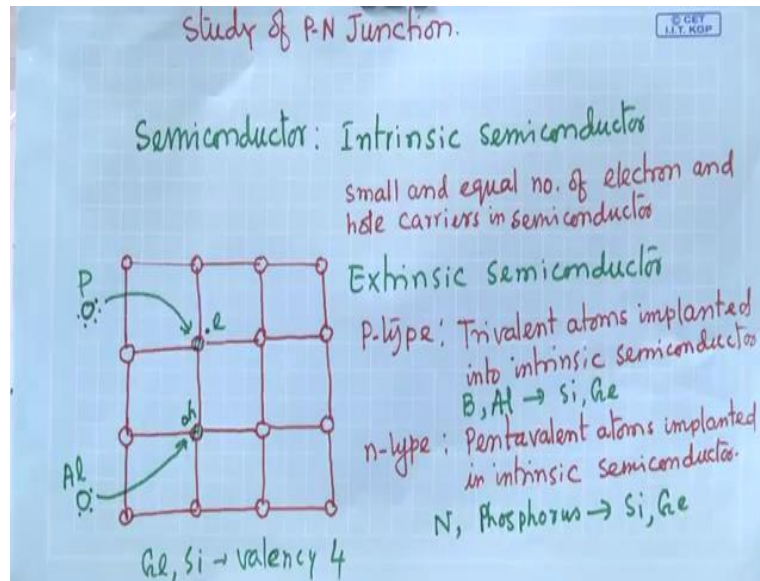 Study of P-N Junction.
© CET
I.I.T. KGP
Semiconductor: Intrinsic semiconductor
small and equal no. of electron and
hole carriers in semiconductor
Extrinsic semiconductor
P
.e
P-type: Trivalent atoms implanted
into intrinsic semiconductor
B, Al → Si, Ge
h
n-type: Pentavalent atoms implanted
in intrinsic semiconductor.
Al
N, Phosphorus → Si, Ge
Ge, Si → valency 4